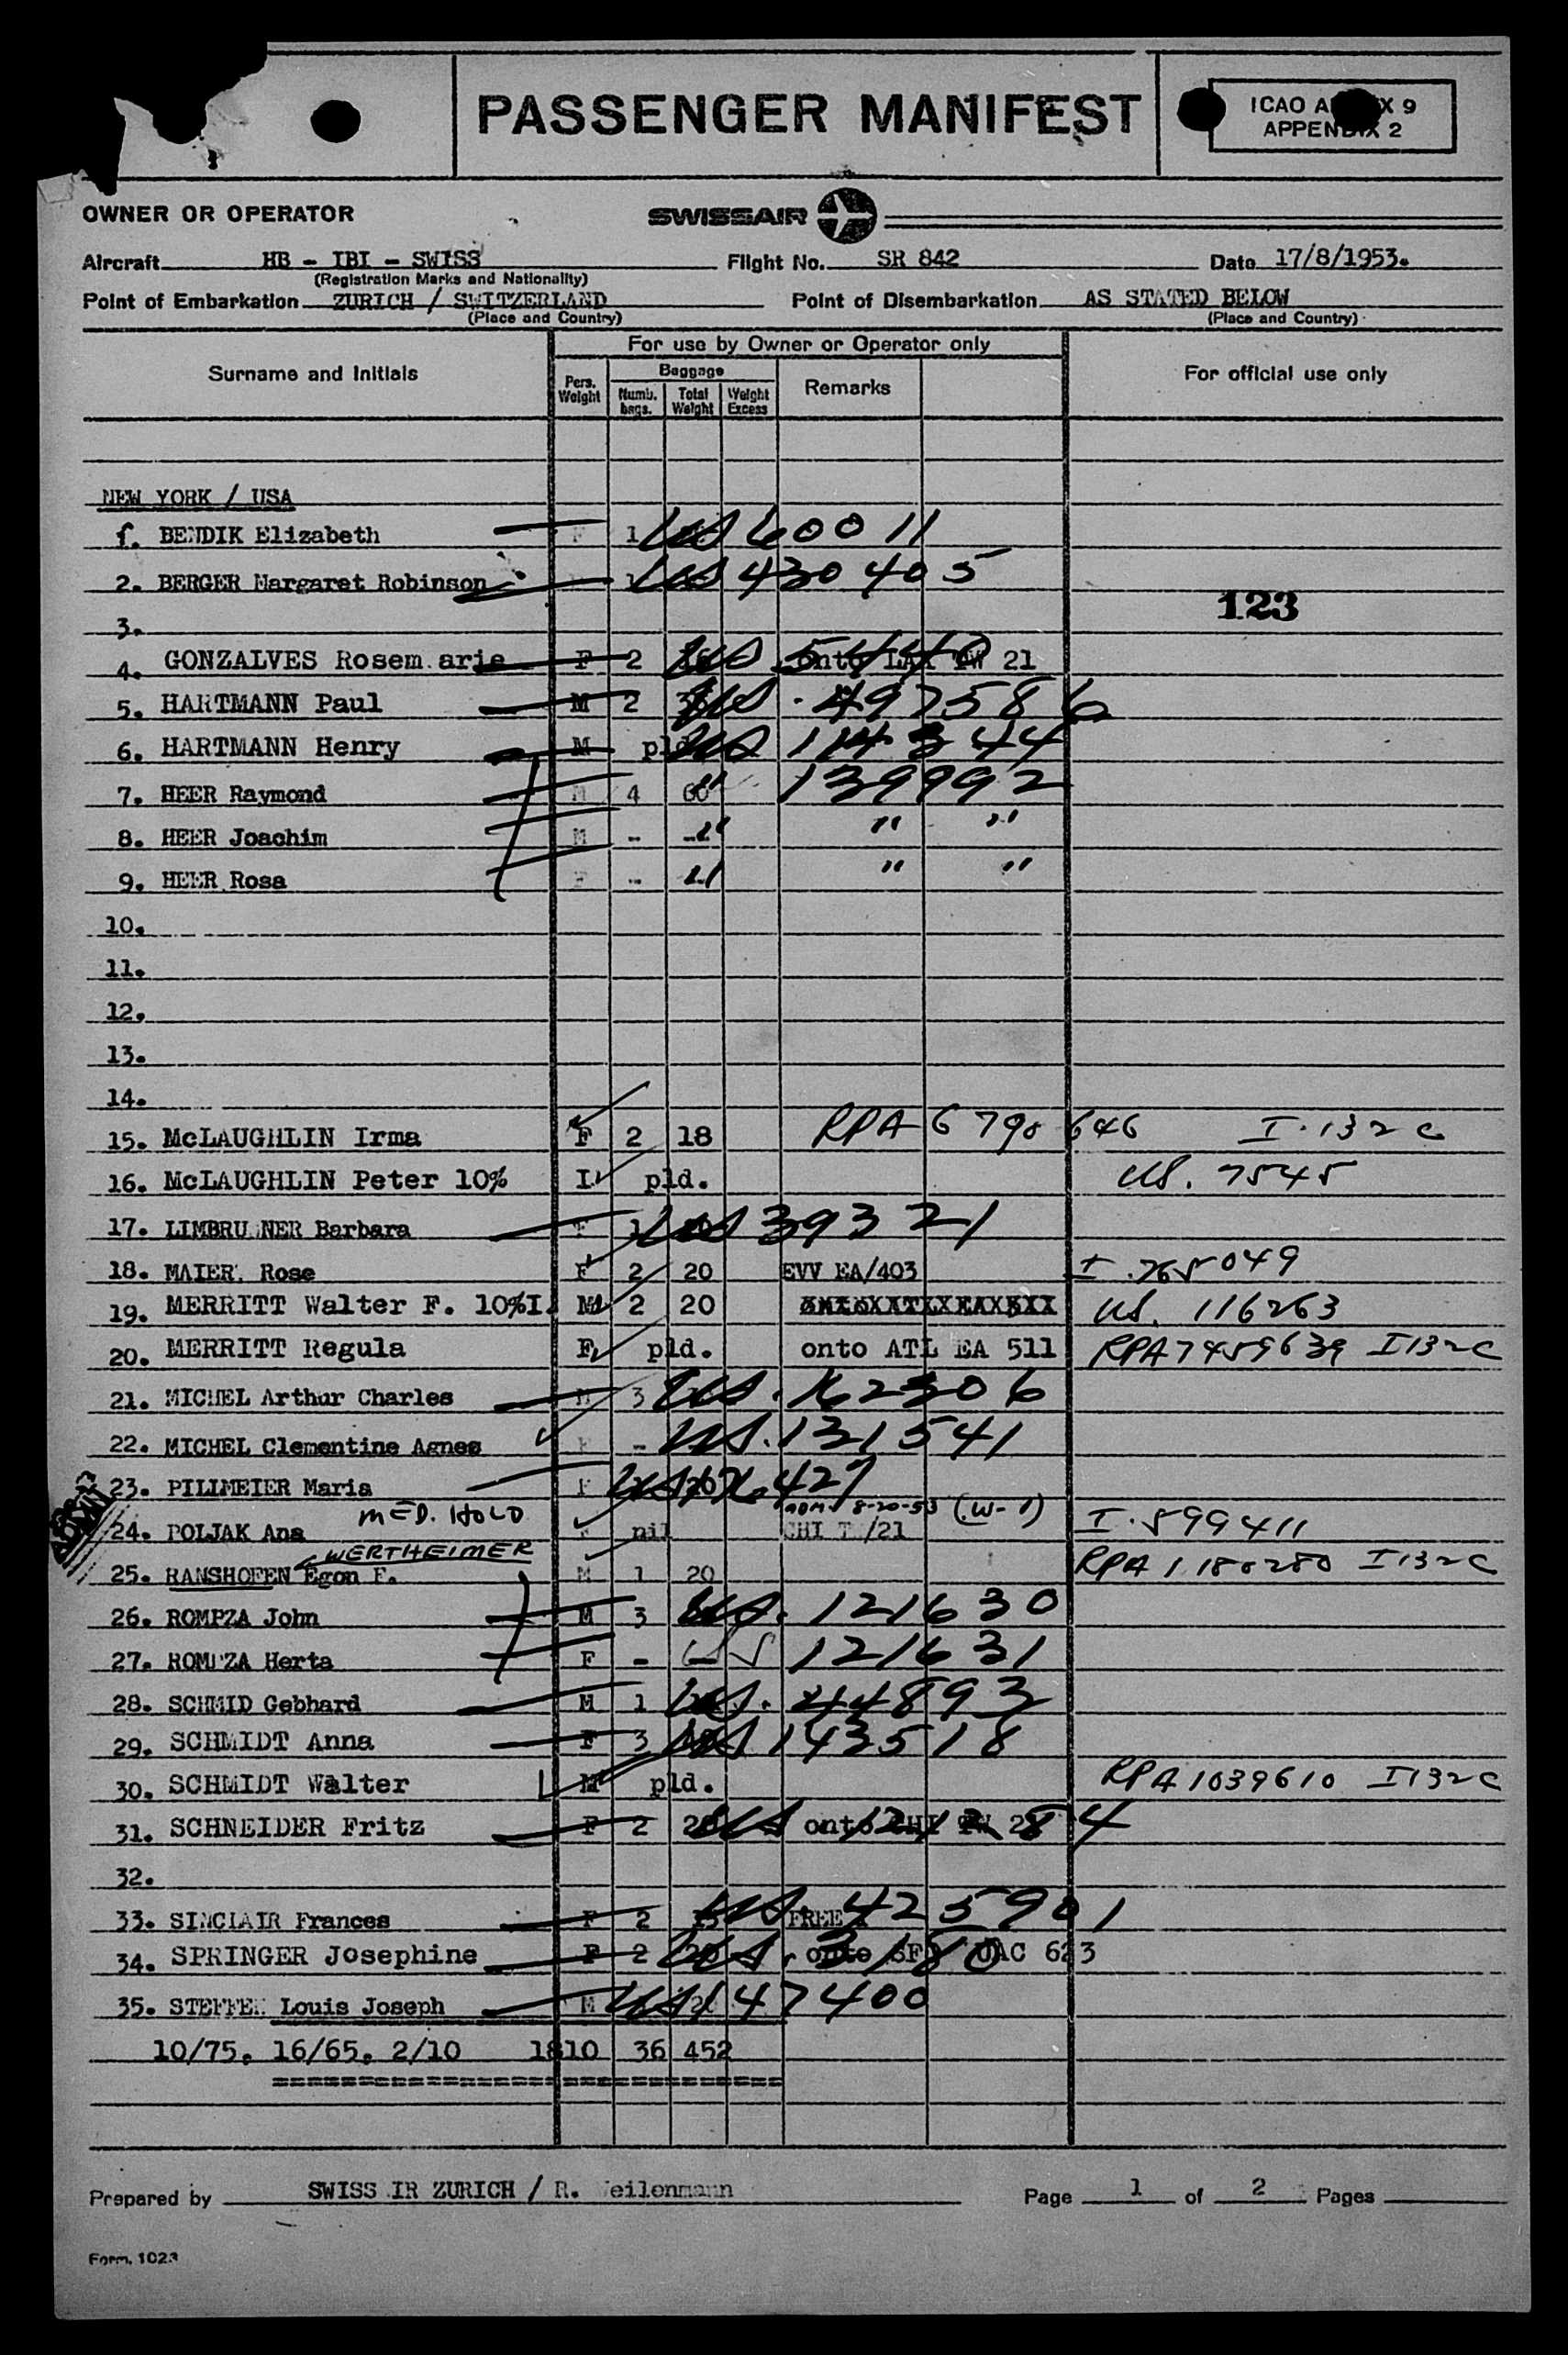 PASSENGER MANIFEST
ICAO
APPENDIX 2
OWNER OR OPERATOR
SWISSAIR
Aircraft HB - IBI - SWISS Flight No. SR 842 Date 17/8/1953.
(Registration Marks and Nationality)
Point of Embarkation ZURICH / SWITZERLAND Point of Disembarkation AS STATED BELOW
(Place and Country) (Place and Country)
For use by Owner or Operator only
Surname and Initials Pers. Weight Baggage Numb. bags. Total Weight Weight Excess Remarks For official use only
NEW YORK / USA
BENDIK Elizabeth F 1 US 60011
2. BERGER Margaret Robinson US 430405
3. 123
4. GONZALVES Rosemarie F 2 US 5440 onto LAX TW 21
5. HARTMANN Paul M 2 US. 497586
6. HARTMANN Henry M pld. US 114344
7. HEER Raymond M 4 60 " 139992
8. HEER Joachim M - - " " "
9. HEER Rosa F - - " " "
10.
11.
12.
13.
14.
15. McLAUGHLIN Irma F 2 18 RPA 6790646 I.132c
16. McLAUGHLIN Peter 10% I pld. US. 7545
17. LIMBRUNNER Barbara F 1 US 39321
18. MAIER, Rose F 2 20 EVV EA/403 I.765049
19. MERRITT Walter F. 10%I. M 2 20 US. 116263
20. MERRITT Regula F pld. onto ATL EA 511 RPA 7459639 I132c
21. MICHEL Arthur Charles M 3 US. 162306
22. MICHEL Clementine Agnes F - US. 131541
23. PILLMEIER Maria F US 20 76427
ADMIT
24. POLJAK Ana MED. HOLD F nil CHI /21 ADM. 8-20-53 (W-1) I.599411
25. RANSHOFEN WERTHEIMER Egon F. M 1 20 RPA 1180280 I132c
26. ROMPZA John M 3 US. 121630
27. ROMPZA Herta F - - US 121631
28. SCHMID Gebhard M 1 US. 244893
29. SCHMIDT Anna F 3 US 143518
30. SCHMIDT Walter M pld. RPA 1039610 I132c
31. SCHNEIDER Fritz F 2 20 US onto CHI TW
32.
33. SINCLAIR Frances F 2 15 US. 425901 FREE
34. SPRINGER Josephine F 2 20 US. 3180 onto SFO UAC 623
35. STEFFEN Louis Joseph M US 147400
10/75, 16/65, 2/10 1810 36 452
Prepared by SWISSAIR ZURICH / R. Weilenmann Page 1 of 2 Pages
Form. 1023